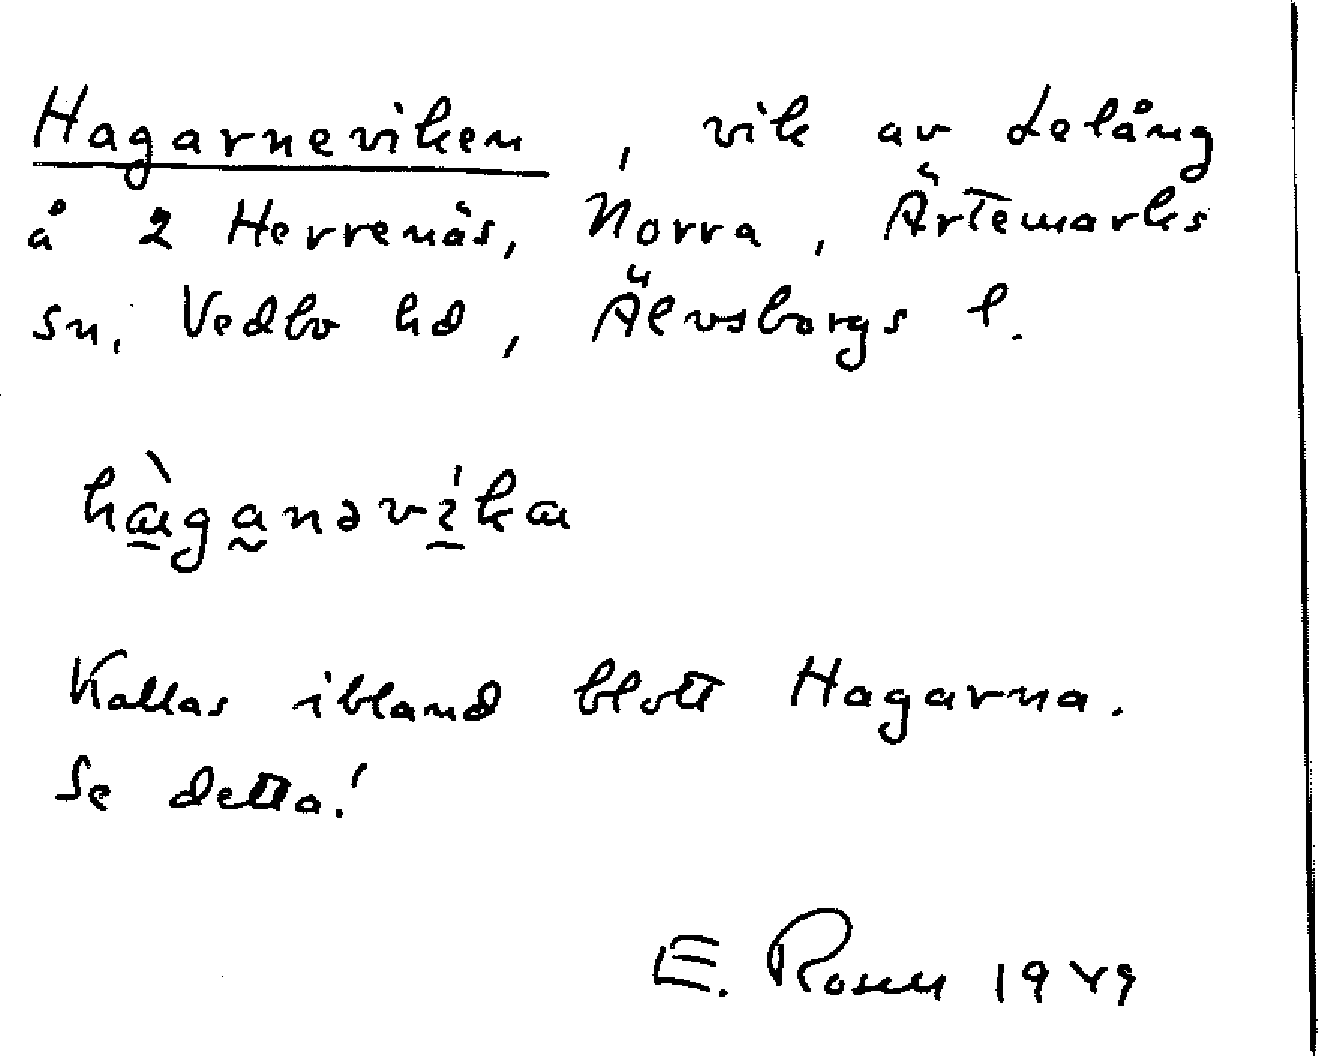 Hagarneviken, vik av Lelång
å 2 Herrenäs, Norra, Ärtemarks
sn, Vedbo hd, Älvsborgs l.
hæ̀ganəvíkæ
Kallas ibland blott Hagarna.
Se detta!
E. Rosell 1949